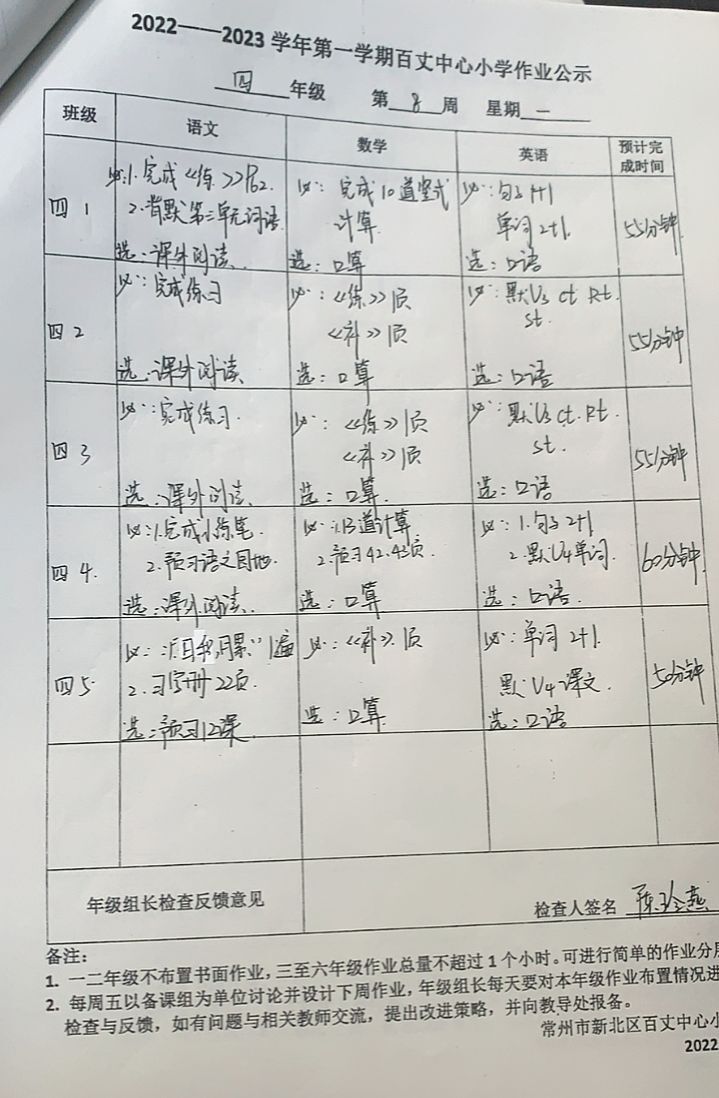 2022——2023 学年第一学期百丈中心小学作业公示
四 年级 第 8 周 星期 一
班级 语文 数学 英语 预计完成时间
四 1
必:1.完成《练》P62.
2.背默第三单元词语
选:课外阅读.
必: 完成10道竖式
计算.
选:口算
必:句子1+1
单词 2+1.
选:口语
55分钟
四 2
必:完成练习
选:课外阅读
必:《练》1页
《补》1页
选:口算
必:默U3 ct Rt.
st.
选:口语
55分钟
四 3
必:完成练习.
选:课外阅读.
必:《练》1页
《补》1页
选:口算.
必:默U3 ct. Rt.
st.
选:口语
55分钟
四 4.
必:1.完成小练笔.
2.预习语文园地.
选:课外阅读.
必:1.13道计算
2.预习42.43页.
选:口算
必:1.句子2+1
2.默U4单词.
选:口语.
60分钟
四 5
必:1. 1遍
2.习字册22页.
选:预习12课.
必:《补》1页
选:口算
必:单词 2+1.
默U4课文.
选:口语
50分钟
年级组长检查反馈意见
检查人签名
备注:
1. 一二年级不布置书面作业,三至六年级作业总量不超过1个小时。可进行简单的作业分层
2. 每周五以备课组为单位讨论并设计下周作业,年级组长每天要对本年级作业布置情况进
检查与反馈,如有问题与相关教师交流,提出改进策略,并向教导处报备。
常州市新北区百丈中心小
2022